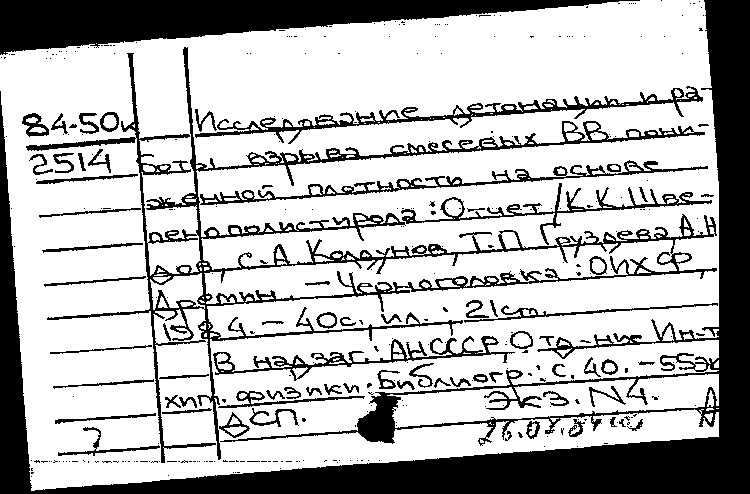 84-50к Исследование детонации и ра-
2514 боты взрыва смесевых ВВ пони-
женной плотности на основе
пенополистирола: Отчет / К.К. Шве-
дов, С.А. Колдунов, Т.П. Груздева, А.Н
Дремин. – Черноголовка: ОИХФ,
1984. – 40 с., ил.; 21 см.
В надзаг.: АН СССР, Отд-ние Ин-та
хим. физики. Библиогр.: с. 40. – 55 эк
ДСП. Экз. N4.
7 26.02.84